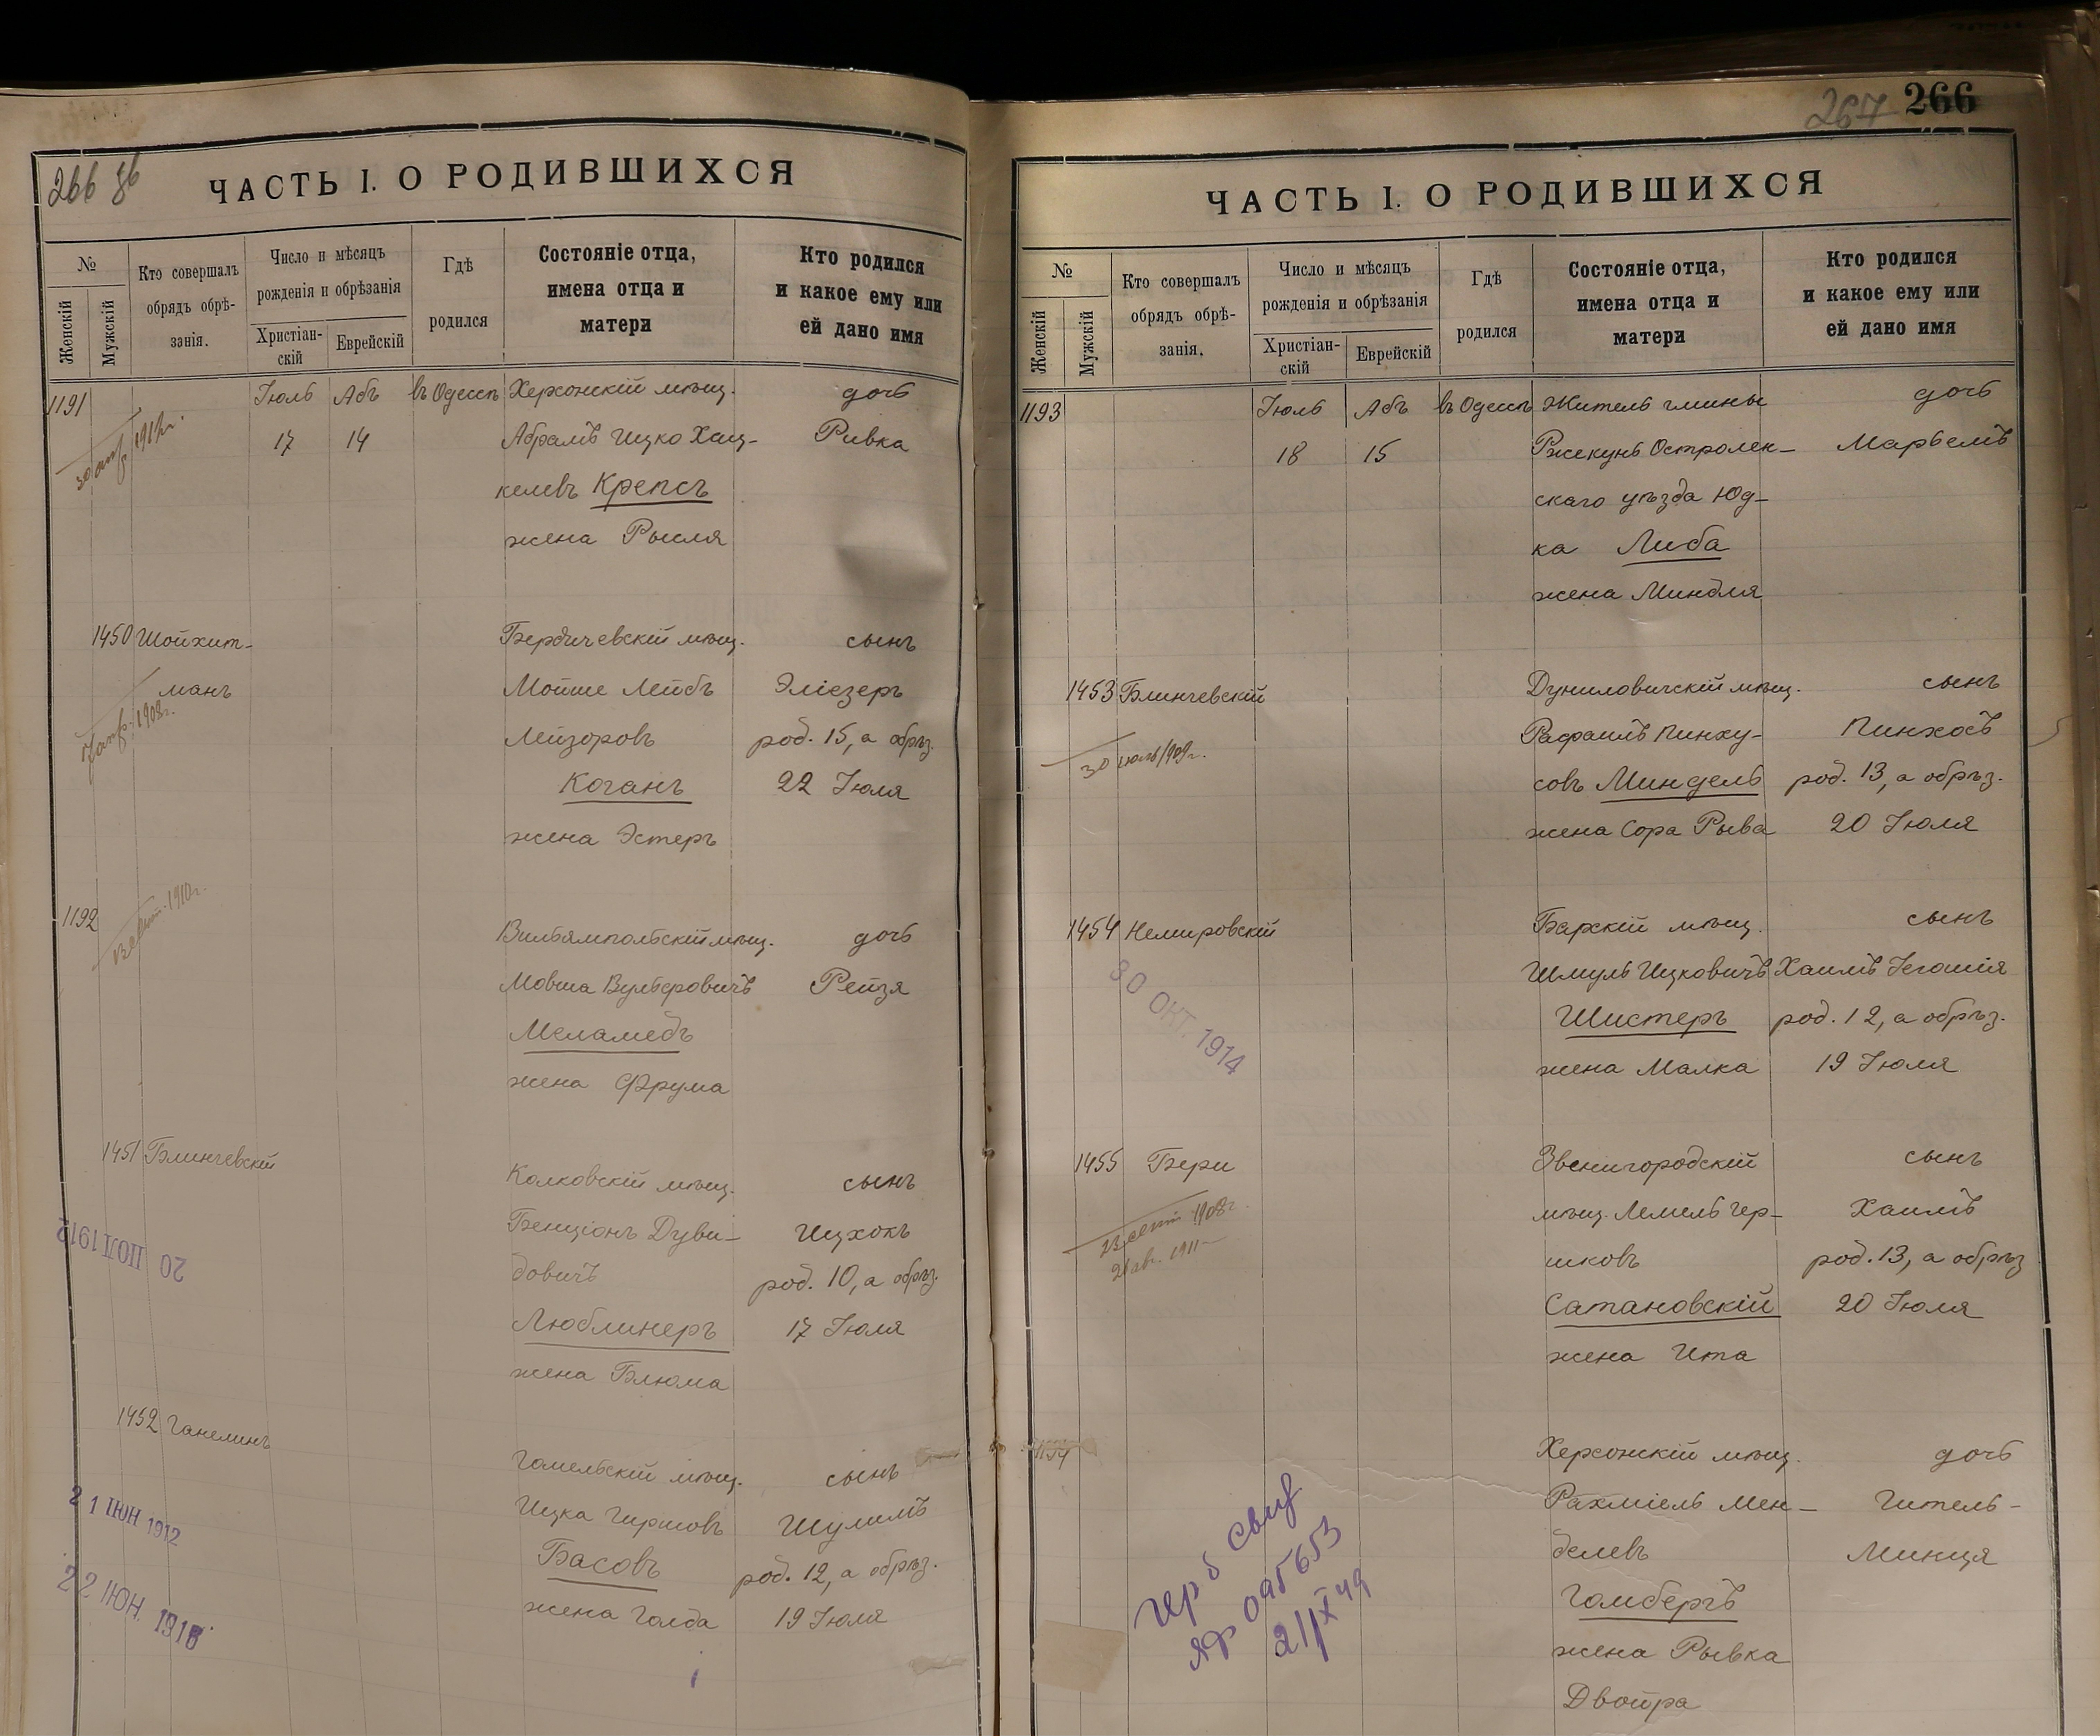 266 зв
ЧАСТЬ I. О РОДИВШИХСЯ
№
Женскій
Мужскій
Кто совершалъ
обрядъ обрѣ-
занія.
Число и мѣсяцъ
рожденія и обрѣзанія
Христіан-
скій
Еврейскій
Гдѣ
родился
Состояніе отца,
имена отца и
матери
Кто родился
и какое ему или
ей дано имя
1191 Іюль Абъ въ Одессѣ Херсонскій мѣщ. дочь
17 14 Абрамъ Ицко Хац- Ривка
келевъ Крепсъ
жена Рысля
1450 Шойхит- Бердичевскій мѣщ. сынъ
манъ Мойше Лейбъ Эліезеръ
1908г. Лейзоровъ род. 15, а обрѣз.
Коганъ 22 Іюля
жена Эстеръ
1192 1910г. Вильямпольскій мѣщ. дочь
Мовша Вульфовичъ Рейзя
Меламедъ
жена Фрума
1451 Блинчевскій Колковскій мѣщ. сынъ
Бенціонъ Дуви- Ицхокъ
довичъ род. 10, а обрѣз.
20 ІЮЛ 1912
Люблинеръ 17 Іюля
жена Блюма
1452 Ганелинъ
Гомельскій мѣщ. сынъ
21 ІЮН 1912
Ицка Гиршовъ Шулимъ
Басовъ род. 12, а обрѣз.
22 ІЮН. 1916
жена Голда 19 Іюля
267 266
ЧАСТЬ I. О РОДИВШИХСЯ
№
Женскій
Мужскій
Кто совершалъ
обрядъ обрѣ-
занія.
Число и мѣсяцъ
рожденія и обрѣзанія
Христіан-
скій
Еврейскій
Гдѣ
родился
Состояніе отца,
имена отца и
матери
Кто родился
и какое ему или
ей дано имя
1193 Іюль Абъ въ Одессѣ Житель гмины дочь
18 15 Ржекунь Остролен- Марьемъ
скаго уѣзда Юд-
ка Либа
жена Миндля
1453 Блинчевскій Дуниловичскій мѣщ. сынъ
Рафаилъ Пинху- Пинхосъ
30 іюль 1909г. совъ Миндель род. 13, а обрѣз.
жена Сора Рыва 20 Іюля
1454 Немировскій Барскій мѣщ. сынъ
30 ОКТ. 1914
Шмуль Ицковичъ Хаимъ Іегошія
Шистеръ род. 12, а обрѣз.
жена Малка 19 Іюля
1455 Бери Звенигородскій сынъ
23 сент 1908г. мѣщ. Лемель Гер- Хаимъ
21 авг. 1911 шковъ род. 13, а обрѣз
Сатановскій 20 Іюля
жена Ита
1194 Херсонскій мѣщ. дочь
Рахміель Мен- Гитель-
делевъ Минця
Гомбергъ
жена Рывка
Двойра
герб свид
ЯФ 095653
21/X 49